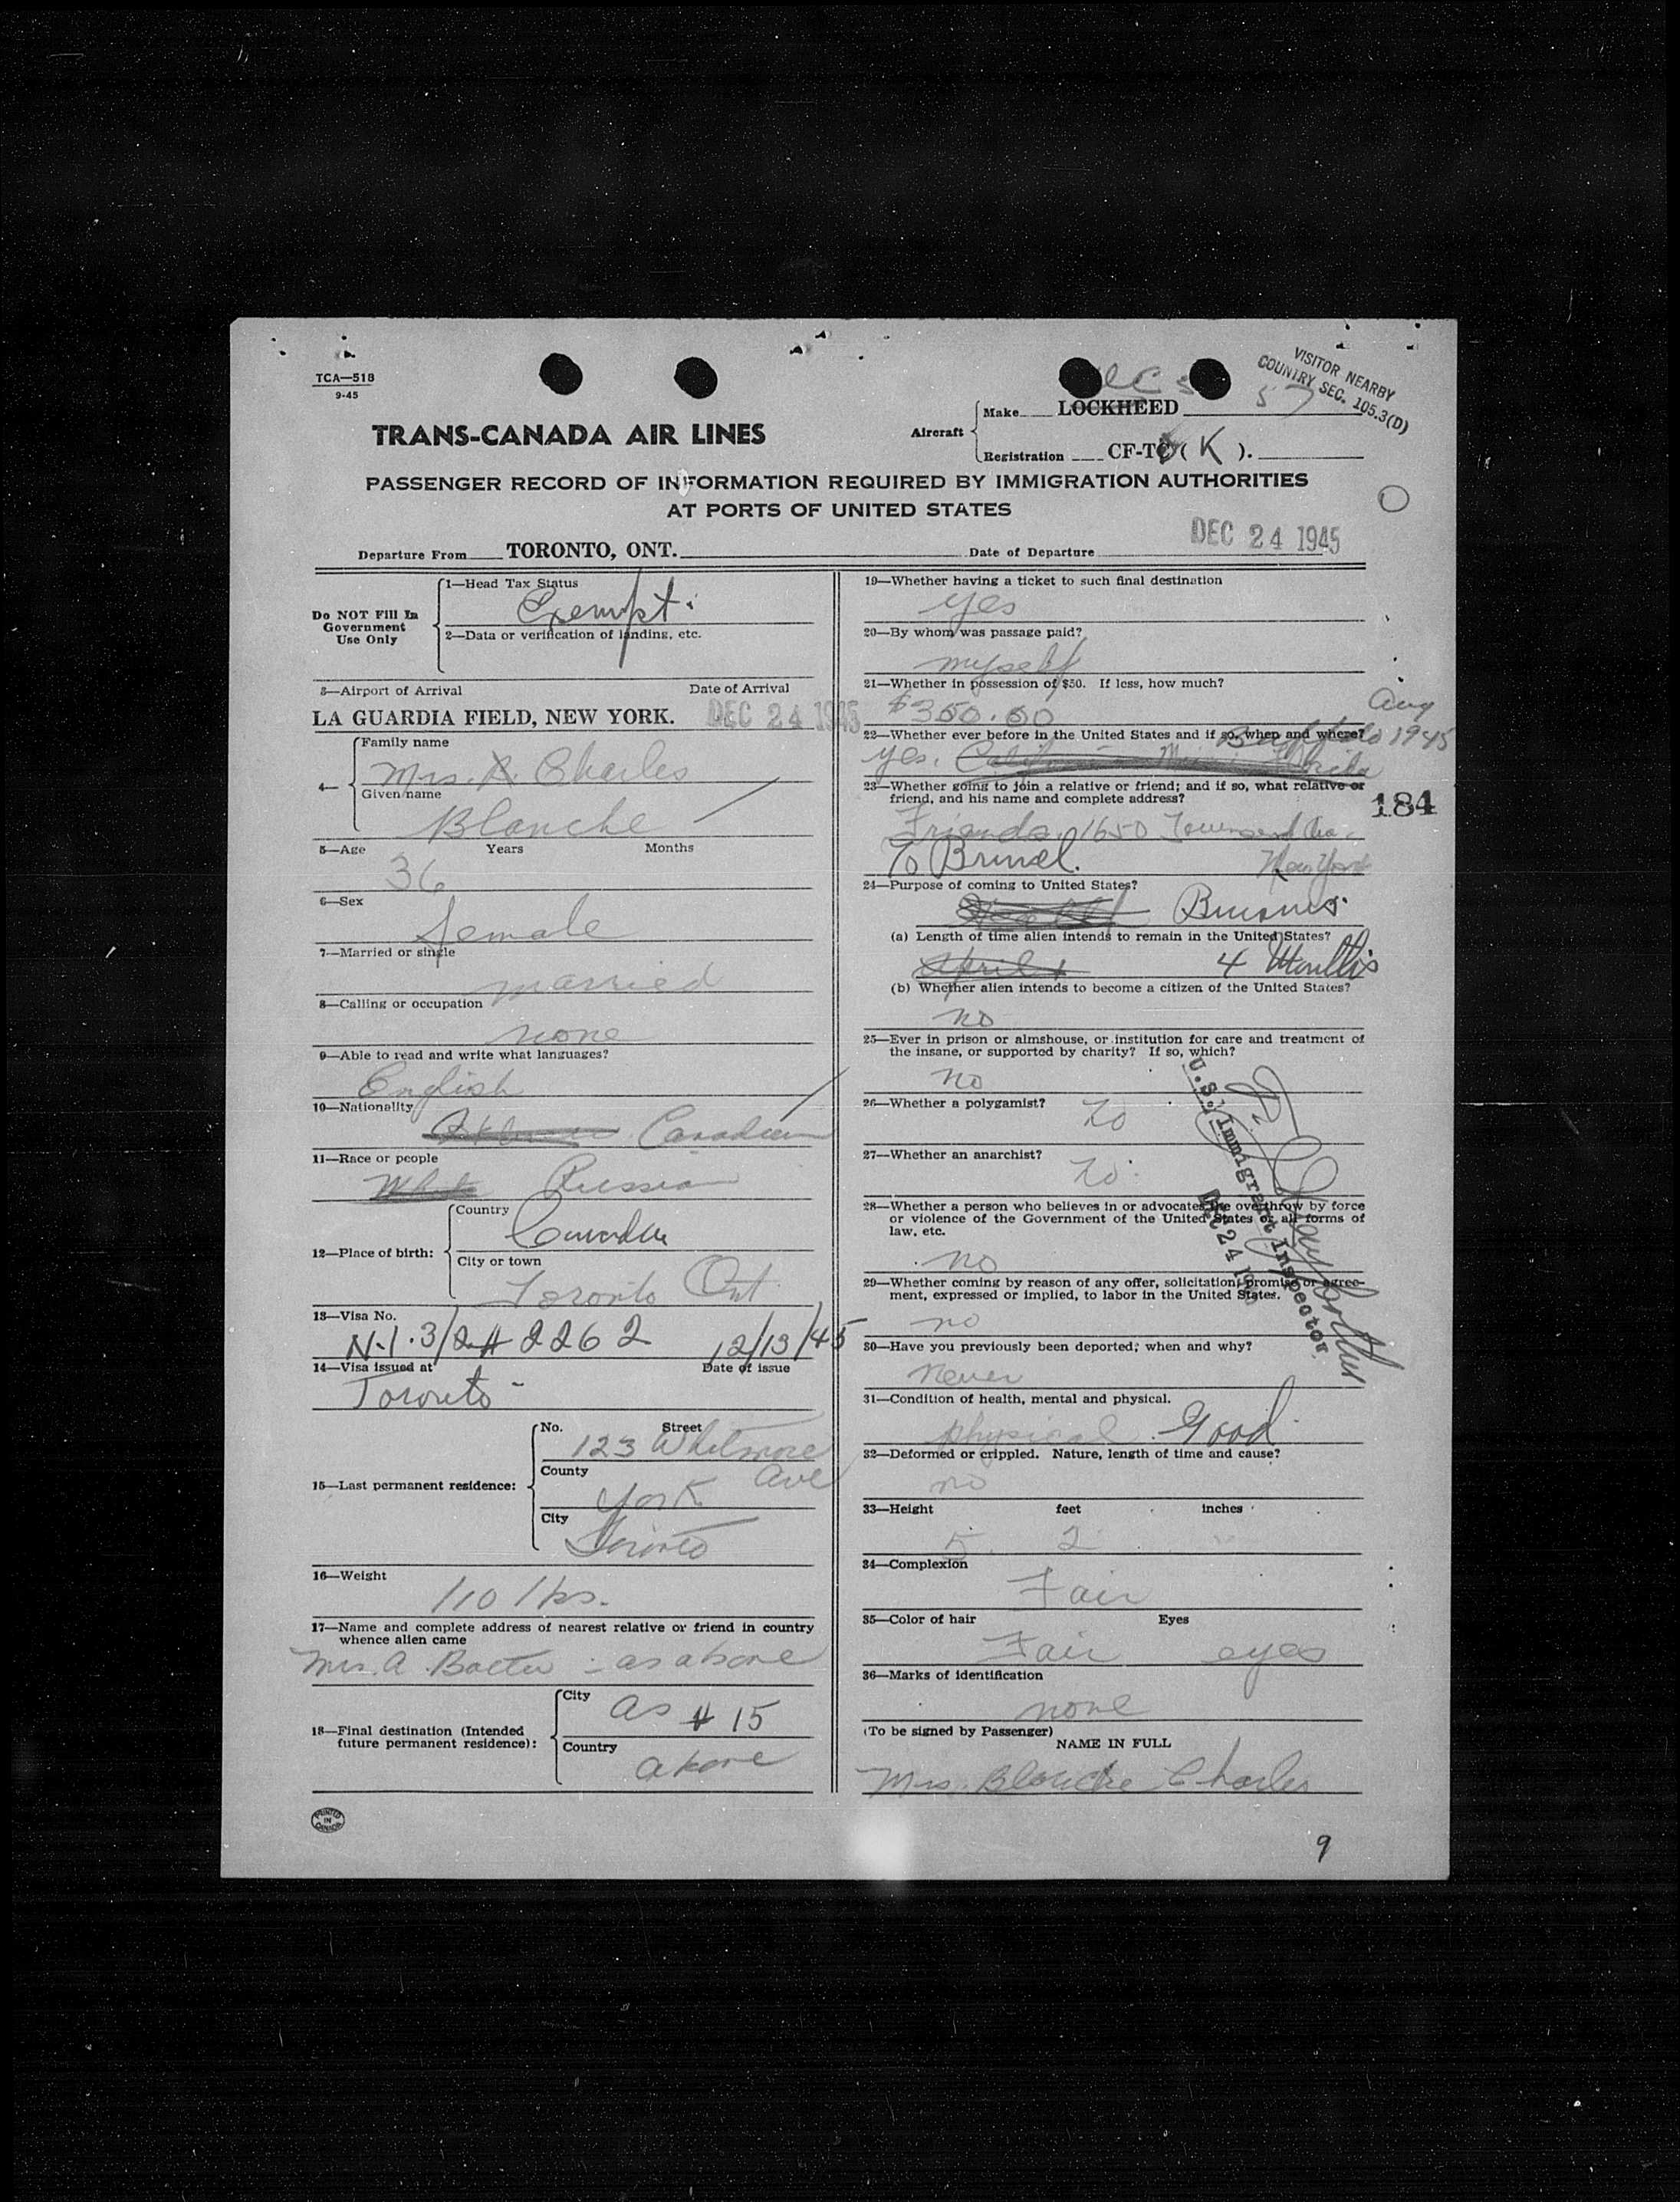 TCA—518
9-45
VISITOR NEARBY
COUNTRY SEC. 105.3(D)
57
TRANS-CANADA AIR LINES
Aircraft
Make LOCKHEED
Registration CF-TC ( K ).
PASSENGER RECORD OF INFORMATION REQUIRED BY IMMIGRATION AUTHORITIES
AT PORTS OF UNITED STATES
Departure From TORONTO, ONT. Date of Departure DEC 24 1945
Do NOT Fill In
Government
Use Only
1—Head Tax Status
Exempt
2—Data or verification of landing, etc.
3—Airport of Arrival Date of Arrival
LA GUARDIA FIELD, NEW YORK. DEC 24 1945
4—
Family name
Mrs. Charles
Given name
Blanche
5—Age Years Months
36
6—Sex
Female
7—Married or single
married
8—Calling or occupation
none
9—Able to read and write what languages?
English
10—Nationality
Canadian
11—Race or people
White Russian
12—Place of birth:
Country
Canada
City or town
Toronto Ont
13—Visa No.
N-1. 3/2 # 2262 12/13/45
14—Visa issued at Date of issue
Toronto
15—Last permanent residence:
No. Street
123 Whitmore
Ave
County
York
City
Toronto
16—Weight
110 lbs.
17—Name and complete address of nearest relative or friend in country
whence alien came
Mrs. A. - as above
18—Final destination (Intended
future permanent residence):
City
as # 15
Country
above
PRINTED
IN
CANADA
19—Whether having a ticket to such final destination
yes
20—By whom was passage paid?
myself
21—Whether in possession of $50. If less, how much?
$350.00
Aug
22—Whether ever before in the United States and if so, when and where?
Buffalo 1945
yes. California Florida
23—Whether going to join a relative or friend; and if so, what relative or
friend, and his name and complete address?
184
Friends 1650 Townsend
New York
24—Purpose of coming to United States?
(a) Length of time alien intends to remain in the United States?
April 4 Months
(b) Whether alien intends to become a citizen of the United States?
no
25—Ever in prison or almshouse, or institution for care and treatment of
the insane, or supported by charity? If so, which?
no
26—Whether a polygamist?
no
27—Whether an anarchist?
no
28—Whether a person who believes in or advocates the overthrow by force
or violence of the Government of the United States or all forms of
law, etc.
no
29—Whether coming by reason of any offer, solicitation, promise or agree-
ment, expressed or implied, to labor in the United States.
no
U.S. Immigrant Inspector
30—Have you previously been deported; when and why?
never
31—Condition of health, mental and physical.
physical Good
32—Deformed or crippled. Nature, length of time and cause?
no
33—Height feet inches
5 2
34—Complexion
Fair
35—Color of hair Eyes
Fair eyes
36—Marks of identification
none
(To be signed by Passenger)
NAME IN FULL
Mrs. Blanche Charles
9